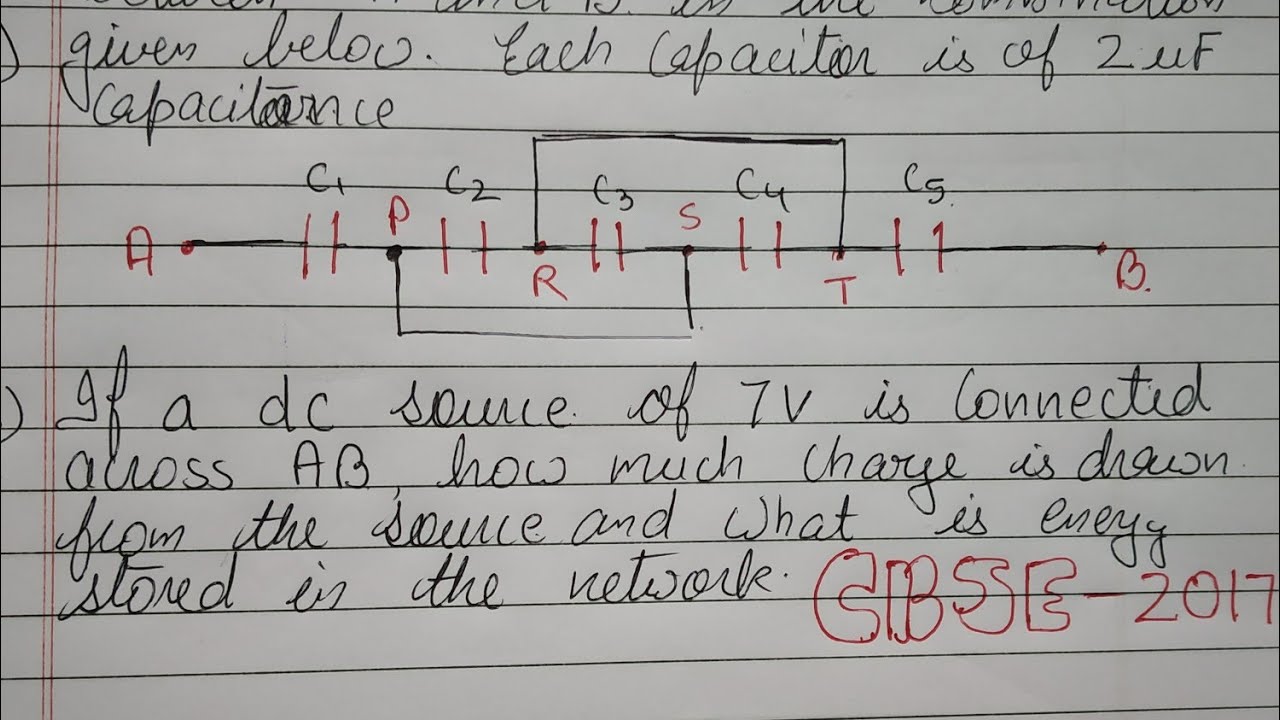 given below. Each Capacitor is of 2 uF
Capacitance
C1 C2 C3 C4 C5
A P R S T B.
If a dc source of 7V is Connected
across AB, how much charge is drawn
from the source and what is energy
stored in the network.
CBSE-2017